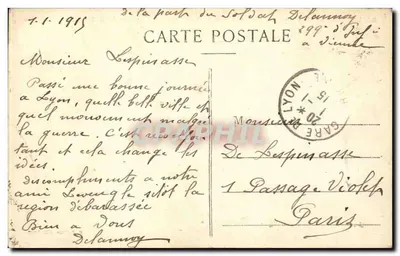 1.1.1915
de la part du Soldat Delannoy
299e d'Inf
à Vienne
CARTE POSTALE
Monsieur Lespinasse
Passé une bonne journée
a Lyon, quelle belle ville et
quel mouvement malgré
la guerre. C'est
tant et cela change les
idées.
compliments a notre
ami sitôt la
région débarassée
Bien a Vous
Delannoy
GARE DE LYON
20
1
15
Monsieur
De Lespinasse
1 Passage Violet
Paris